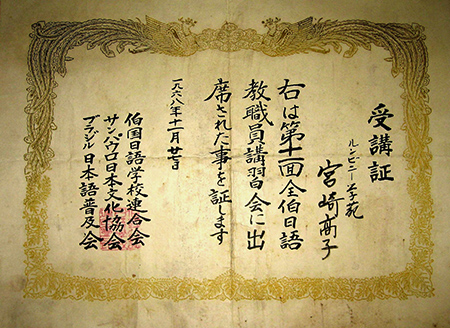 受講証
ルンビニー学苑
宮崎髙子
右は第十一回全伯日語
教職員講習会に出
席された事を証します
一九六八年十一月
伯国日語学校連合会
サンパウロ日本文化協会
ブラジル日本語普及会